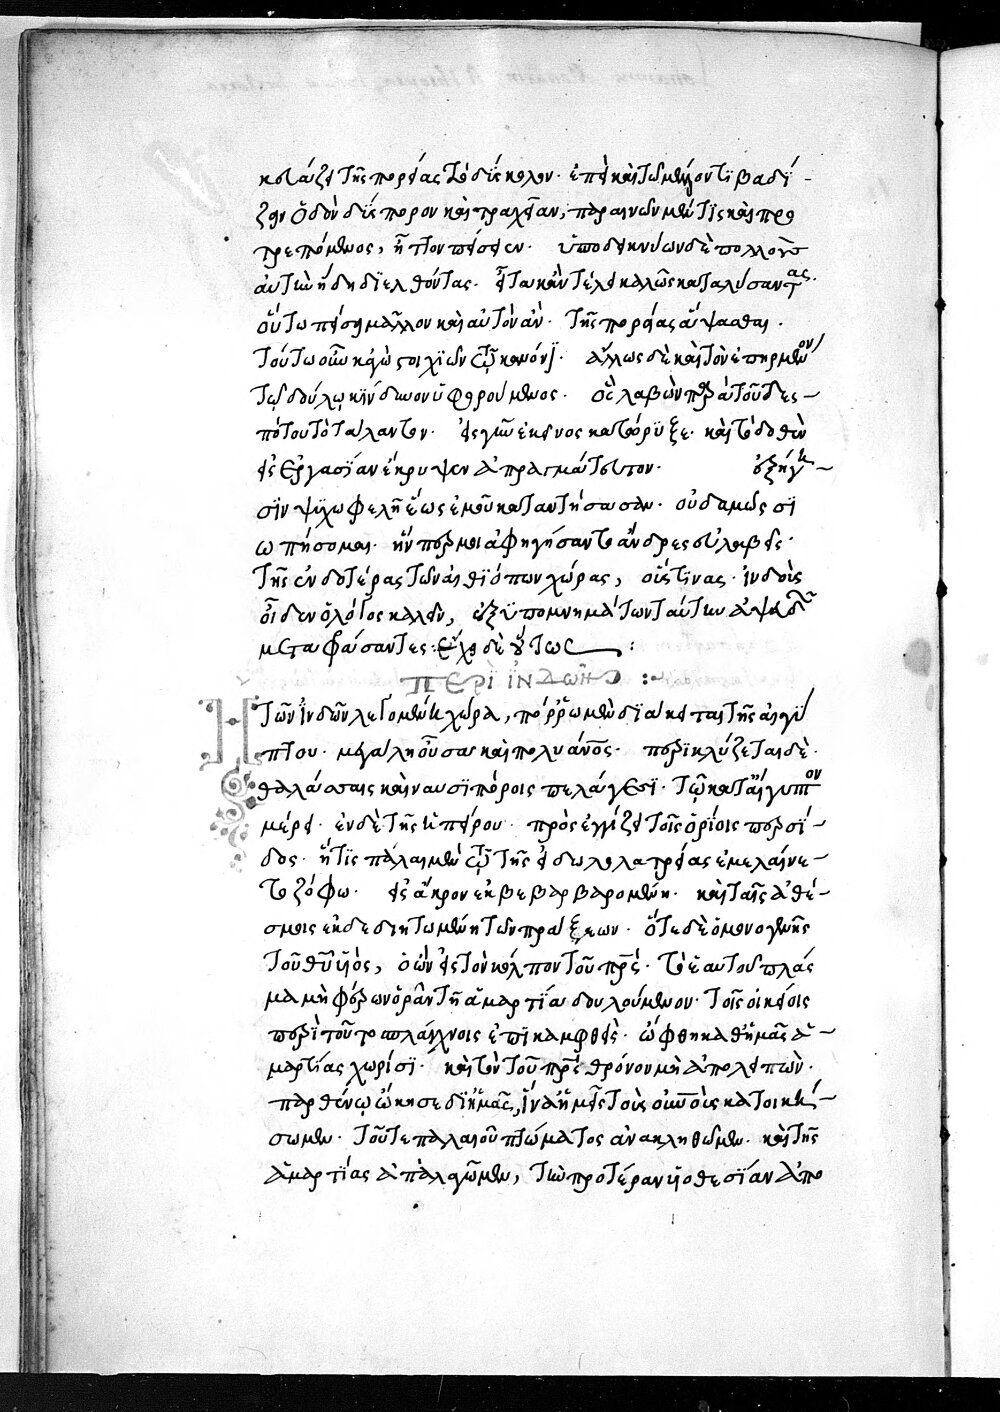 τῆς πορείας τὸ δύσκολον· ἐπεὶ καὶ τῶ μέλλοντι βαδί-
ζειν ὁδὸν δύσπορον καὶ τραχεῖαν, παραινῶν μέν τις καὶ προ
τρεπόμενος, ἧττον πείσειεν· ὑποδεικνύων δὲ πολλοὺς
αὐτὴν ἤδη διελθόντας· εἶτα κἂν τέλει καλῶς καταλύσαντας·
οὕτω πείσει μᾶλλον καὶ αὐτὸν ἂν τῆς πορείας ἅψασθαι·
τούτω οὖν κἀγὼ στοιχῶν τῶ κανόνι· ἄλλως δὲ καὶ τὸν ἐπηρμένον
τῷ δούλῳ κίνδυνον ὑφορούμενος· ὃς λαβὼν παρὰ τοῦ δεσ-
πότου τὸ τάλαντον· εἰς γῆν ἐκεῖνος κατώρυξε· καὶ τὸ δοθὲν
εἰς ἐργασίαν ἔκρυψεν ἀπραγμάτευτον· ἐξήγη-
σιν ψυχωφελῆ ἕως ἐμοῦ καταντήσασαν· οὐδαμῶς σι
ωπήσομαι· ἥνπερ μοι ἀφηγήσαντο ἄνδρες εὐλαβεῖς·
τῆς ἐνδοτέρας τῶν αἰθιόπων χώρας, οὕστινας ἰνδοὺς
οἶδεν ὁ λόγος καλεῖν, ἐξ ὑπομνημάτων ταύτην ἀψευδῶν
μεταφράσαντες· ἔχει δὲ οὕτως :
ΠΕΡῚ ἸΝΔΩΝ͂ :~
Ἡ τῶν ἰνδῶν λεγομένη χώρα, πόρρω μὲν διάκειται τῆς αἰγύ
πτου· μεγάλη οὖσα καὶ πολυάνος· περικλύζεται δὲ·
θαλάσσαις καὶ ναυσιπόροις πελάγεσι· τῶ κατ' αἴγυπτον
μέρει· ἐν δὲ τῆς ἠπείρου· προσεγγίζει τοῖς ὁρίοις περσί-
δος· ἥτις πάλαι μὲν τῶ τῆς εἰδωλολατρείας ἐμελαίνε-
το ζόφω· εἰς ἄκρον ἐκβεβαρβαρομένη· καὶ ταῖς ἀθέ-
σμοις ἐκδεδιητωμένη τῶν πράξεων· ὅτε δὲ ὁ μονογενὴς
τοῦ θῦ υἱὸς, ὁ ὢν εἰς τὸν κόλπον τοῦ πρς· τὸ ἑαυτοῦ πλάσ
μα μὴ φέρων ὁρᾶν τῆ ἁμαρτία δουλούμενον· τοῖς οἰκείοις
περὶ τοῦτο σπλάγχνοις ἐπικαμφθεὶς· ὤφθη καθ' ἡμᾶς ἁ-
μαρτίας χωρίς· καὶ τὸν τοῦ πρς θρόνον μὴ ἀπολειπὼν·
παρθένῳ ὤκησε δι' ἡμᾶς, ἵν' ἡμεῖς τοὺς οὐνοὺς κατοική-
σωμεν· τοῦ τε παλαιοῦ πτώματος ἀνακληθῶμεν· καὶ τῆς
ἁμαρτίας ἀπαλαγῶμεν, τὴν προτέραν υἱοθεσίαν ἀπο